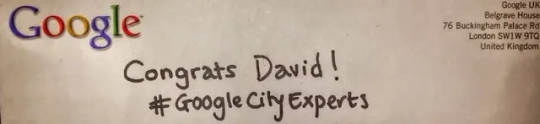 Google
Google UK
Belgrave House
76 Buckingham Palace Rd
London SW1W 9TQ
United Kingdom
Congrats David!
#GoogleCityExperts